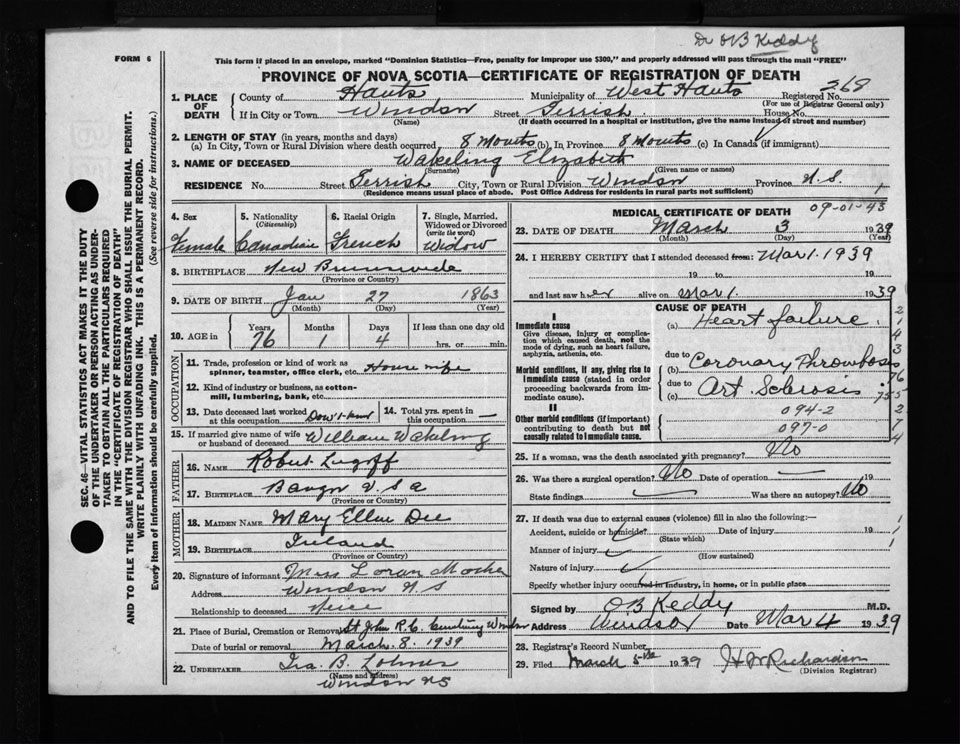 Dr OB Keddy
FORM 6
This form if placed in an envelope, marked "Dominion Statistics—Free, penalty for improper use $300," and properly addressed will pass through the mail "FREE"
PROVINCE OF NOVA SCOTIA—CERTIFICATE OF REGISTRATION OF DEATH
268
1. PLACE OF DEATH County of Hants Municipality of West Hants Registered No.
(For use of Registrar General only)
If in City or Town Windsor Street Terrish House No.
(Name) (If death occurred in a hospital or institution, give the name instead of street and number)
2. LENGTH OF STAY (in years, months and days)
(a) In City, Town or Rural Division where death occurred 8 Months (b) In Province 8 Months (c) In Canada (if immigrant)
3. NAME OF DECEASED Wakeling Elizabeth
(Surname) (Given name or names)
RESIDENCE No. Street Terrish City, Town or Rural Division Windsor Province N.S.
(Residence means usual place of abode. Post Office Address for residents in rural parts not sufficient)
SEC. 46—VITAL STATISTICS ACT MAKES IT THE DUTY
OF THE UNDERTAKER OR PERSON ACTING AS UNDER-
TAKER TO OBTAIN ALL THE PARTICULARS REQUIRED
IN THE "CERTIFICATE OF REGISTRATION OF DEATH"
AND TO FILE THE SAME WITH THE DIVISION REGISTRAR WHO SHALL ISSUE THE BURIAL PERMIT.
WRITE PLAINLY WITH UNFADING INK. THIS IS A PERMANENT RECORD.
Every item of information should be carefully supplied. (See reverse side for instructions.)
4. Sex 5. Nationality 6. Racial Origin 7. Single, Married,
(Citizenship) Widowed or Divorced
(write the word)
Female Canadian French Widow
8. BIRTHPLACE New Brunswick
(Province or Country)
9. DATE OF BIRTH Jan 27 1863
(Month) (Day) (Year)
10. AGE in Years Months Days If less than one day old
76 1 4 hrs. or min.
OCCUPATION
11. Trade, profession or kind of work as
spinner, teamster, office clerk, etc. House wife
12. Kind of industry or business, as cotton-
mill, lumbering, bank, etc.
13. Date deceased last worked at this occupation Don't know 14. Total yrs. spent in this occupation —
15. If married give name of wife or husband of deceased William Wakeling
FATHER
16. NAME Robert
17. BIRTHPLACE Bangor U S A
MOTHER
18. MAIDEN NAME Mary Ellen Dee
19. BIRTHPLACE Ireland
(Province or Country)
20. Signature of informant Mrs Loran
Address Windsor N S
Relationship to deceased Neice
21. Place of Burial, Cremation or Removal St John R.C. Cemetery Windsor
Date of burial or removal March 8. 1939
22. UNDERTAKER Ira. B.
(Name and Address)
Windsor NS
MEDICAL CERTIFICATE OF DEATH 09-01-43
23. DATE OF DEATH March 3 1939
(Month) (Day) (Year)
24. I HEREBY CERTIFY that I attended deceased from: Mar 1. 1939
19 to 19
and last saw h er alive on Mar 1. 1939
CAUSE OF DEATH
I
Immediate cause
Give disease, injury or complica-
tion which caused death, not the
mode of dying, such as heart failure,
asphyxia, asthenia, etc.
(a) Heart failure
due to
Morbid conditions, if any, giving rise to
immediate cause (stated in order
proceeding backwards from im-
mediate cause).
(b) Coronary Thrombosis
due to
(c) Art. Sclerosis
II
Other morbid conditions (if important)
contributing to death but not
causally related to immediate cause.
094-2
097-0
25. If a woman, was the death associated with pregnancy? No
26. Was there a surgical operation? No Date of operation — 19
State findings Was there an autopsy? No
27. If death was due to external causes (violence) fill in also the following:—
Accident, suicide or homicide? Date of injury 19
(State which)
Manner of injury
(How sustained)
Nature of injury
Specify whether injury occurred in industry, in home, or in public place
Signed by OB Keddy M.D.
Address Windsor Date Mar 4 1939
28. Registrar's Record Number
29. Filed March 5th 1939 H W Richardson
(Division Registrar)